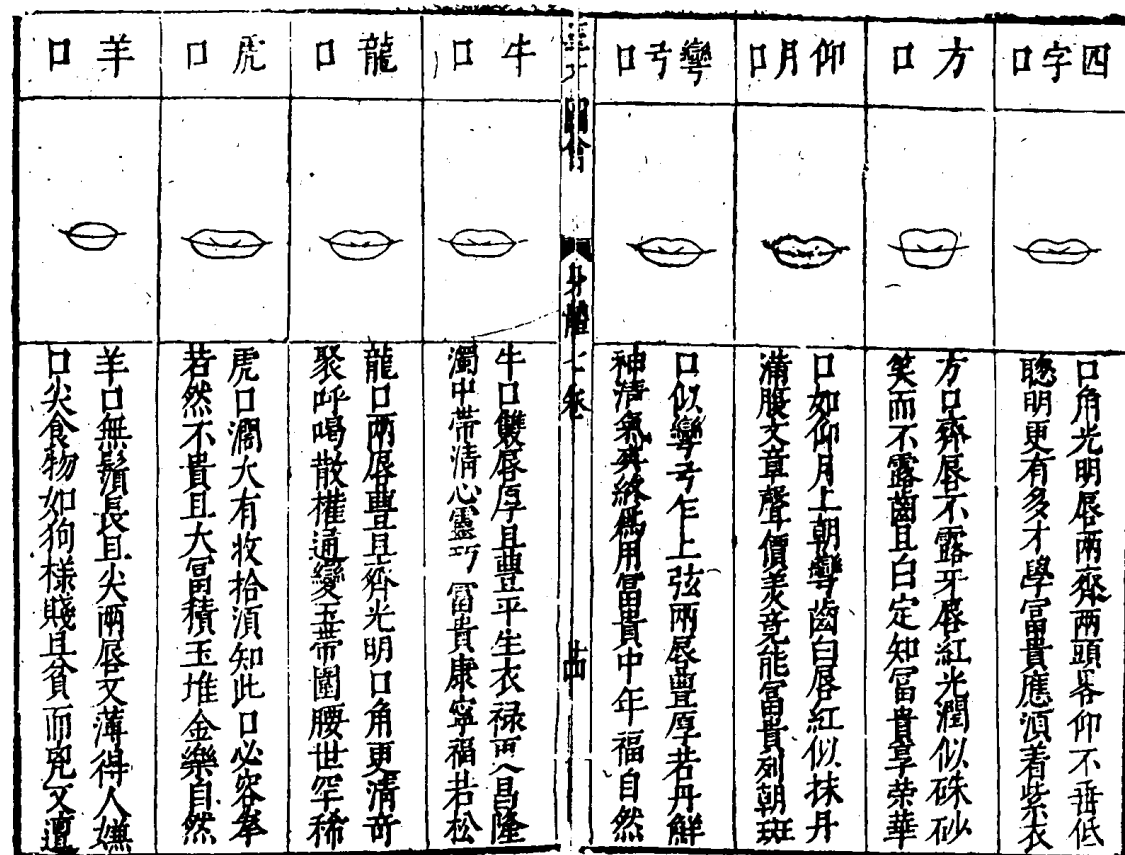 四字口
口角光明唇兩齊兩頭畧仰不垂低
聰明更有多才學富貴應須着紫衣
方口
方口齊唇不露牙唇紅光潤似硃砂
笑而不露齒且白定知富貴享荣華
仰月口
口如仰月上朝彎齒白唇紅似抹丹
滿腹文章聲價美竟能富貴列朝班
彎弓口
口似彎弓乍上弦兩唇豊厚若丹鮮
神清氣爽終爲用富貴中年福自然
圖會
身體七卷
牛口
牛口雙唇厚且豊平生衣禄更昌隆
濁中帶清心靈巧富貴康寧福若松
龍口
龍口兩唇豊且齊光明口角更清奇
聚呼喝散權通變玉帶圍腰世罕稀
虎口
虎口濶大有收拾須知此口必容拳
若然不貴且大富積玉堆金樂自然
羊口
羊口無鬚長且尖兩唇又薄得人嫌
口尖食物如狗様賤且貧而兇又邅